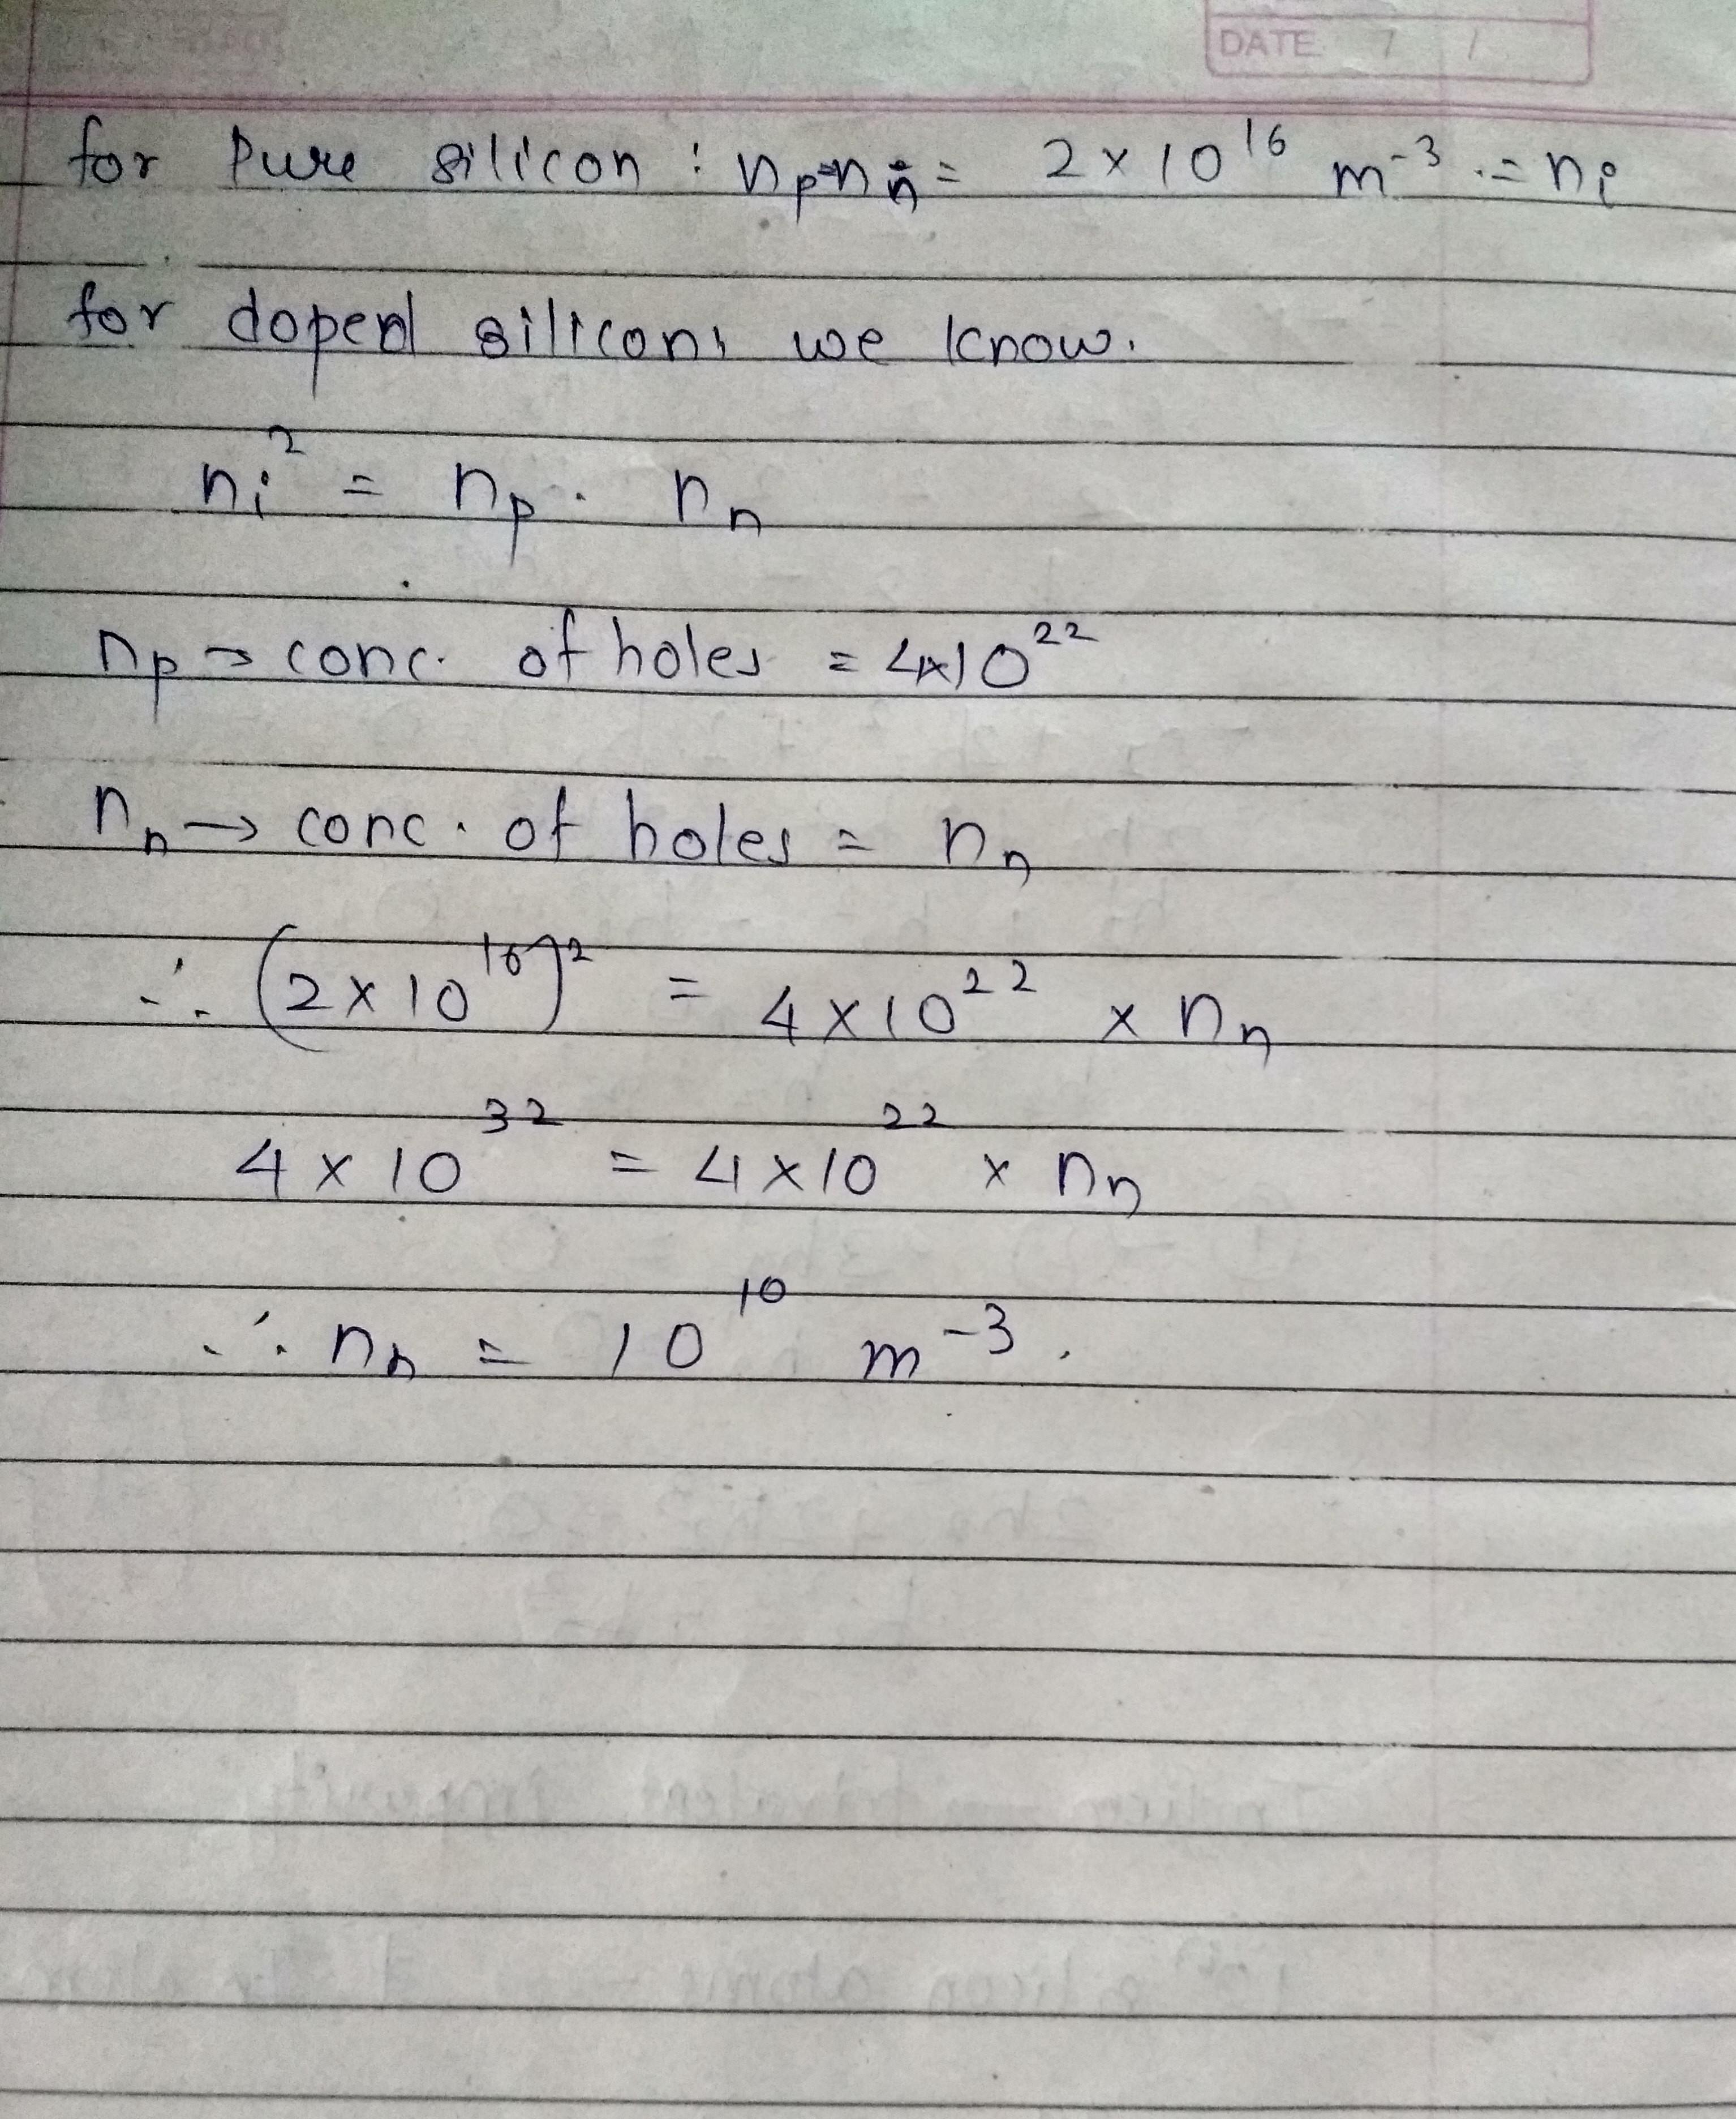 DATE / /
for Pure silicon : np=nn = 2 × 10¹⁶ m⁻³ . = ni
for doped silicon, we know.
ni² = np . nn
np → conc. of holes = 4×10²²
nn → conc. of holes = nn
∴ (2 × 10¹⁶)² = 4 × 10²² × nn
4 × 10³² = 4 × 10²² × nn
∴ nn = 10¹⁰ m⁻³ .